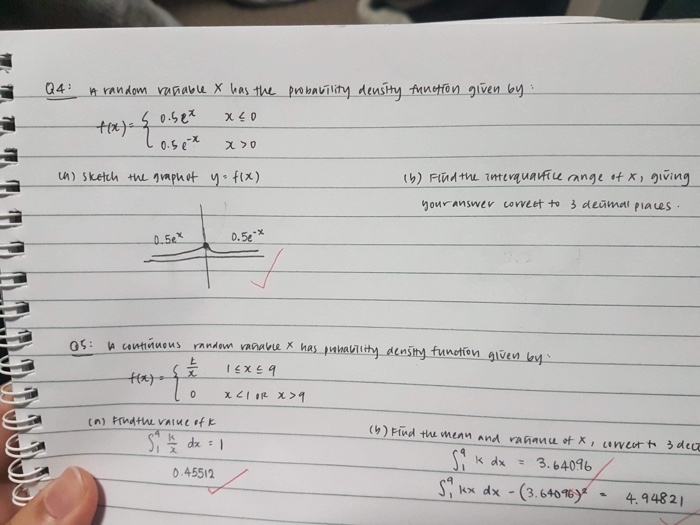 Q4: A random variable X has the probability density function given by:
f(x) = { 0.5e^x x ≤ 0
0.5e^-x x > 0
(a) sketch the graph of y = f(x)
(b) Find the interquartile range of X, giving
your answer correct to 3 decimal places.
0.5e^x 0.5e^-x
Q5: A continuous random variable X has probability density function given by:
f(x) = { k/x 1 ≤ x ≤ 9
0 x < 1 OR x > 9
(a) Find the value of k
(b) Find the mean and variance of X, correct to 3 deci
∫₁⁹ k/x dx = 1
∫₁⁹ k dx = 3.64096
0.45512
∫₁⁹ kx dx - (3.64096)² = 4.94821